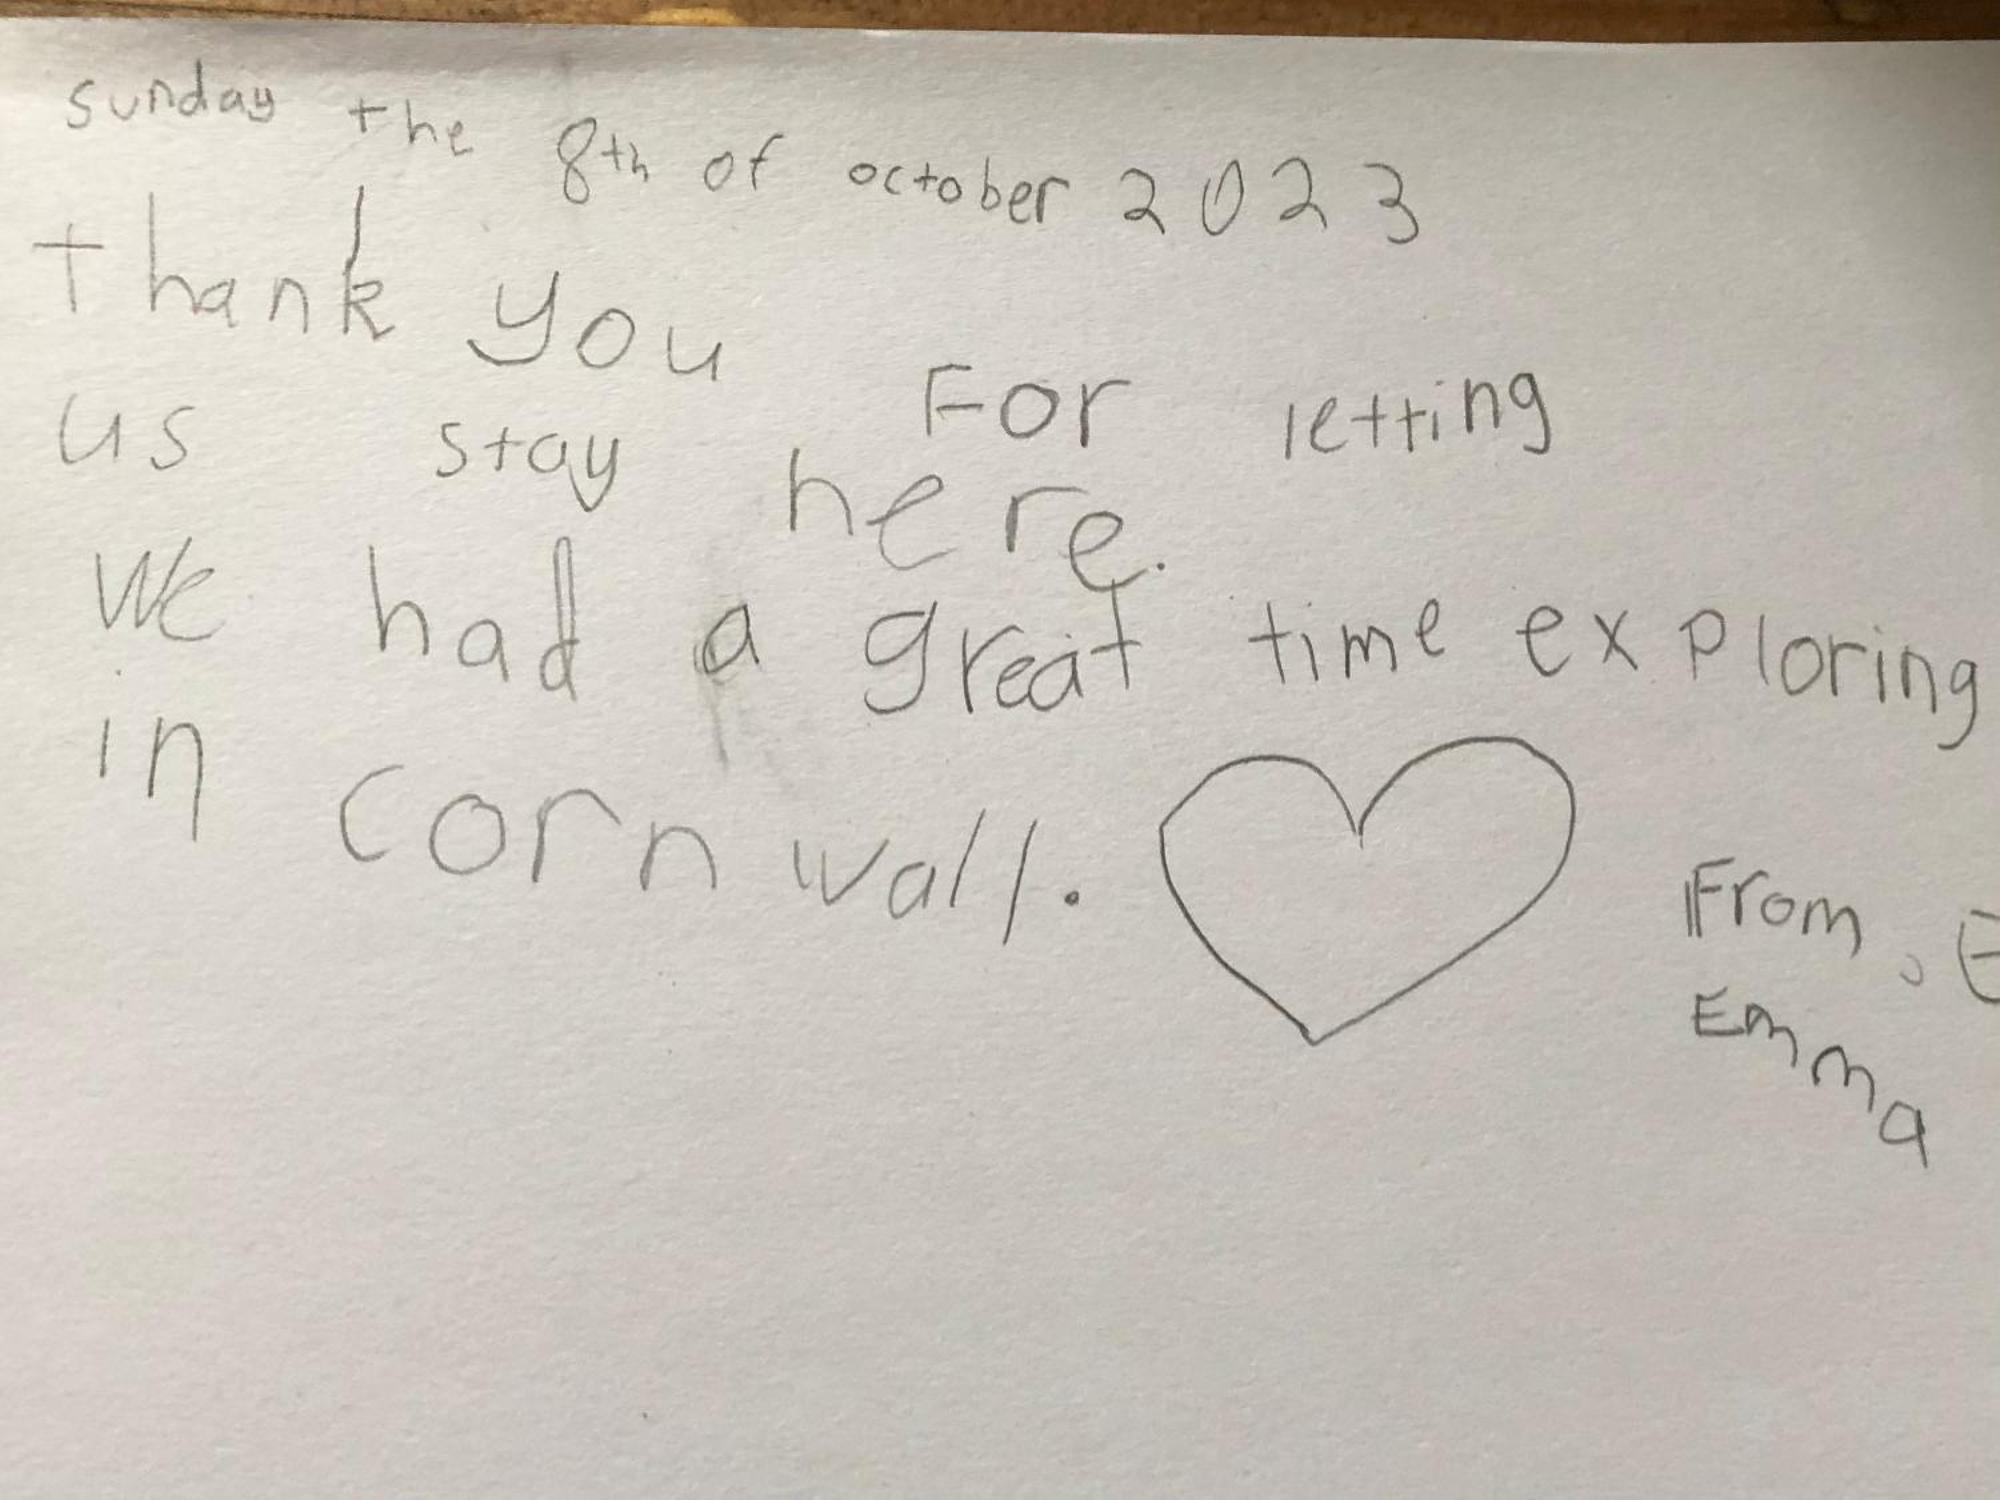 sunday the 8th of october 2023
thank you For letting
us stay here.
We had a great time exploring
in cornwall.
From,
Emma